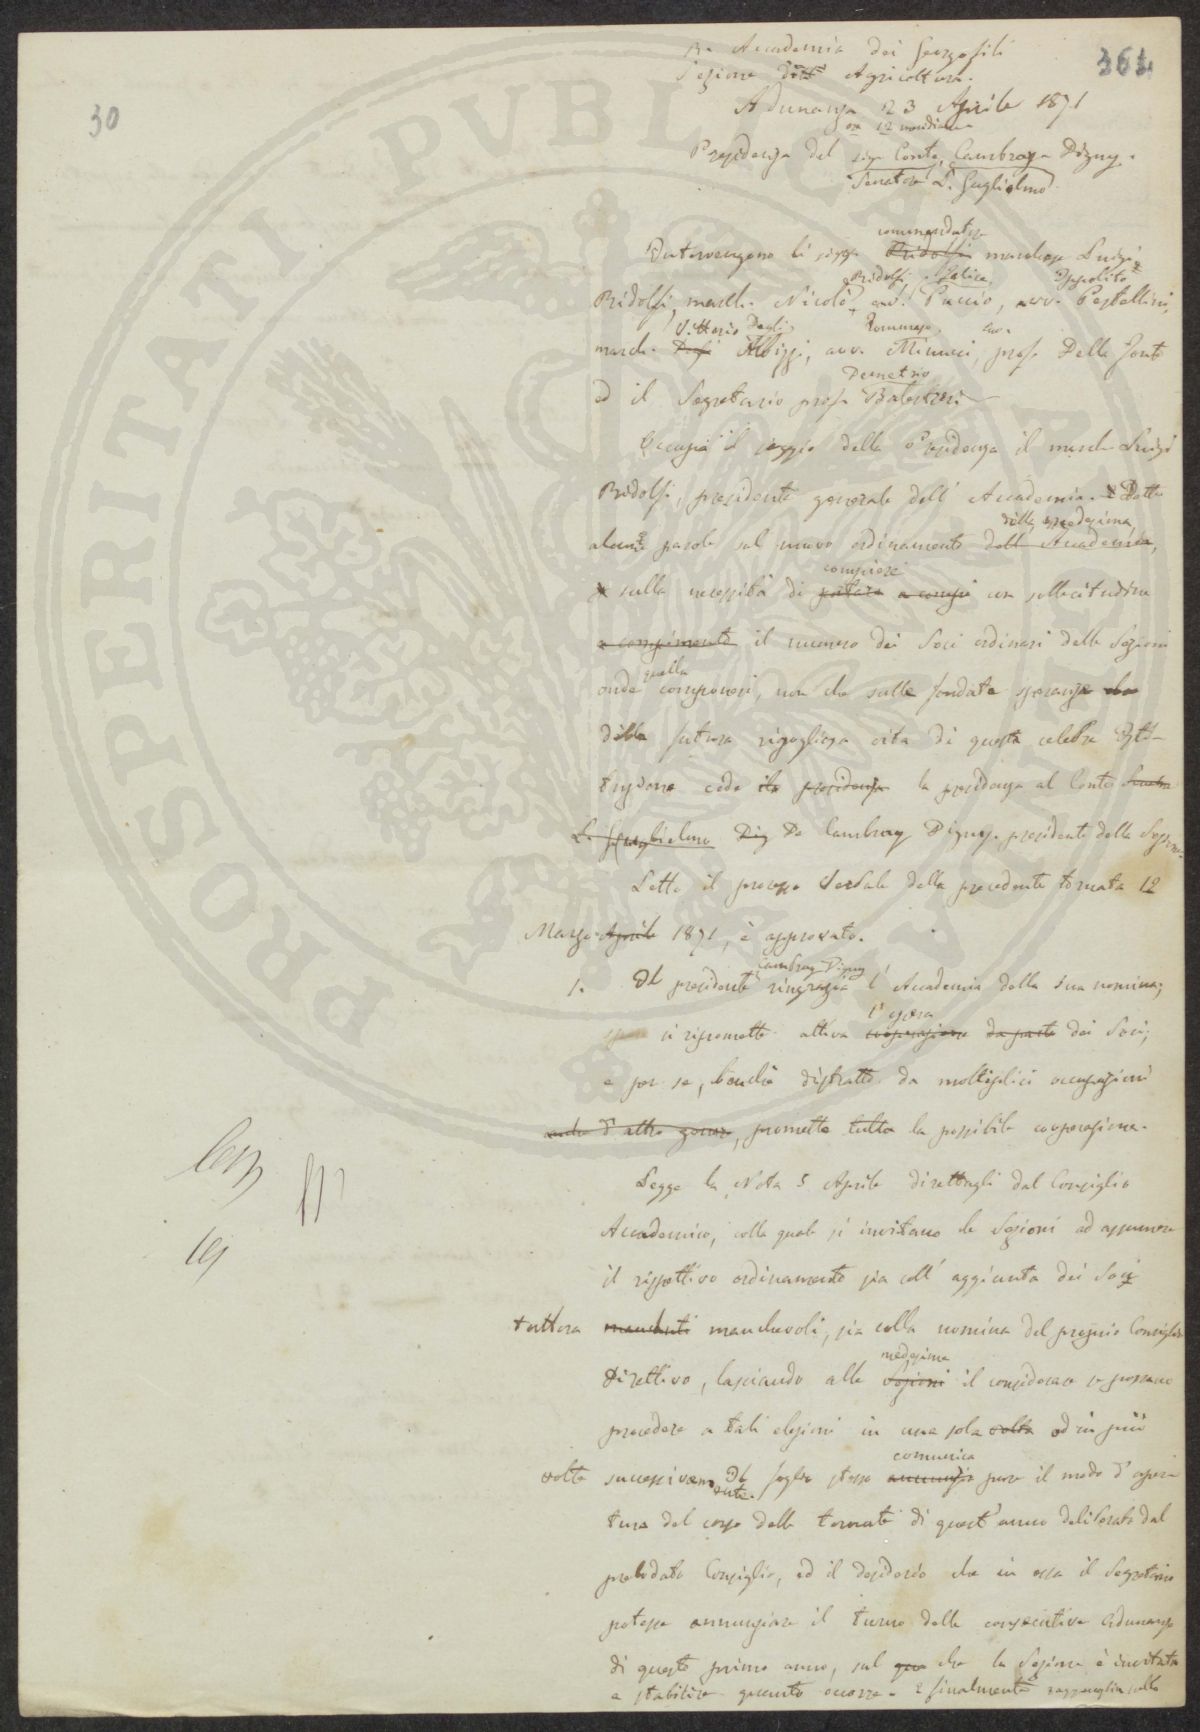 361
30
R. Accademia dei Georgofili
Sezione dell' Agricoltura.
Adunanza 23 Aprile 1871
ore 12 meridiane
Presidenza del sigr Conte, Cambray Digny.
Senatore L. Guglielmo
commendatore
Intervengono li sigg. Ridolfi marchese Luigi
Ridolfi Felice Ippolito
Ridolfi, march. Nicolò, cav. Puccio, avv. Pestellini,
Vittorio Degli Tommaso cav.
march. Degli Albizzi, avv. Minucci, prof. Della Fonte
Demetrio
ed il Segretario prof. Balestrieri
Occupa il seggio della Presidenza il march. Luigi
Ridolfi, presidente generale dell' Accademia. Dette
della medesima,
alcune parole sul nuovo ordinamento dell' Accademia,
compiere
sulla necessità di portare a compi con sollecitudine
a compimento il numero dei Soci ordinari delle Sezioni
quella
onde componesi, non che sulle fondate speranze
della futura rigogliosa vita di questa celebre Isti-
tuzione cede la presidenza la presidenza al Conte Senatore
L. Guglielmo Dig De Cambray Digny. presidente della Sezione.
Letto il processo verbale della precedente tornata 12
Marzo Aprile 1871, è approvato.
Cambray-Digny
1. Il presidente ringrazia l' Accademia della sua nomina;
l' opera
si ripromette attiva cooperazione da parte dei Soci;
e per se, benchè distratto da molteplici occupazioni
anche d' altro genere, promette tutta la possibile cooperazione.
Legge la Nota 5 Aprile direttagli dal Consiglio
Accademico, colla quale si invitano le Sezioni ad assumere
il rispettivo ordinamento sia coll' aggiunta dei Soci
tuttora mancanti manchevoli, sia colla nomina del proprio Consiglio
medesime
Direttivo, lasciando alle Sezioni il considerare se possano
procedere a tali elezioni in una sola volta od in più
comunica
volte successivamente. Il foglio stesso annunzia pure il modo d' aper
tura del corso delle tornate di quest' anno deliberato dal
prelodato Consiglio, ed il desiderio che in essa il Segretario
potesse annunziare il turno delle consecutive Adunanze
di questo primo anno, sul que che la Sezione è invitata
a stabilire quanto occorre. E finalmente ragguaglia sulla